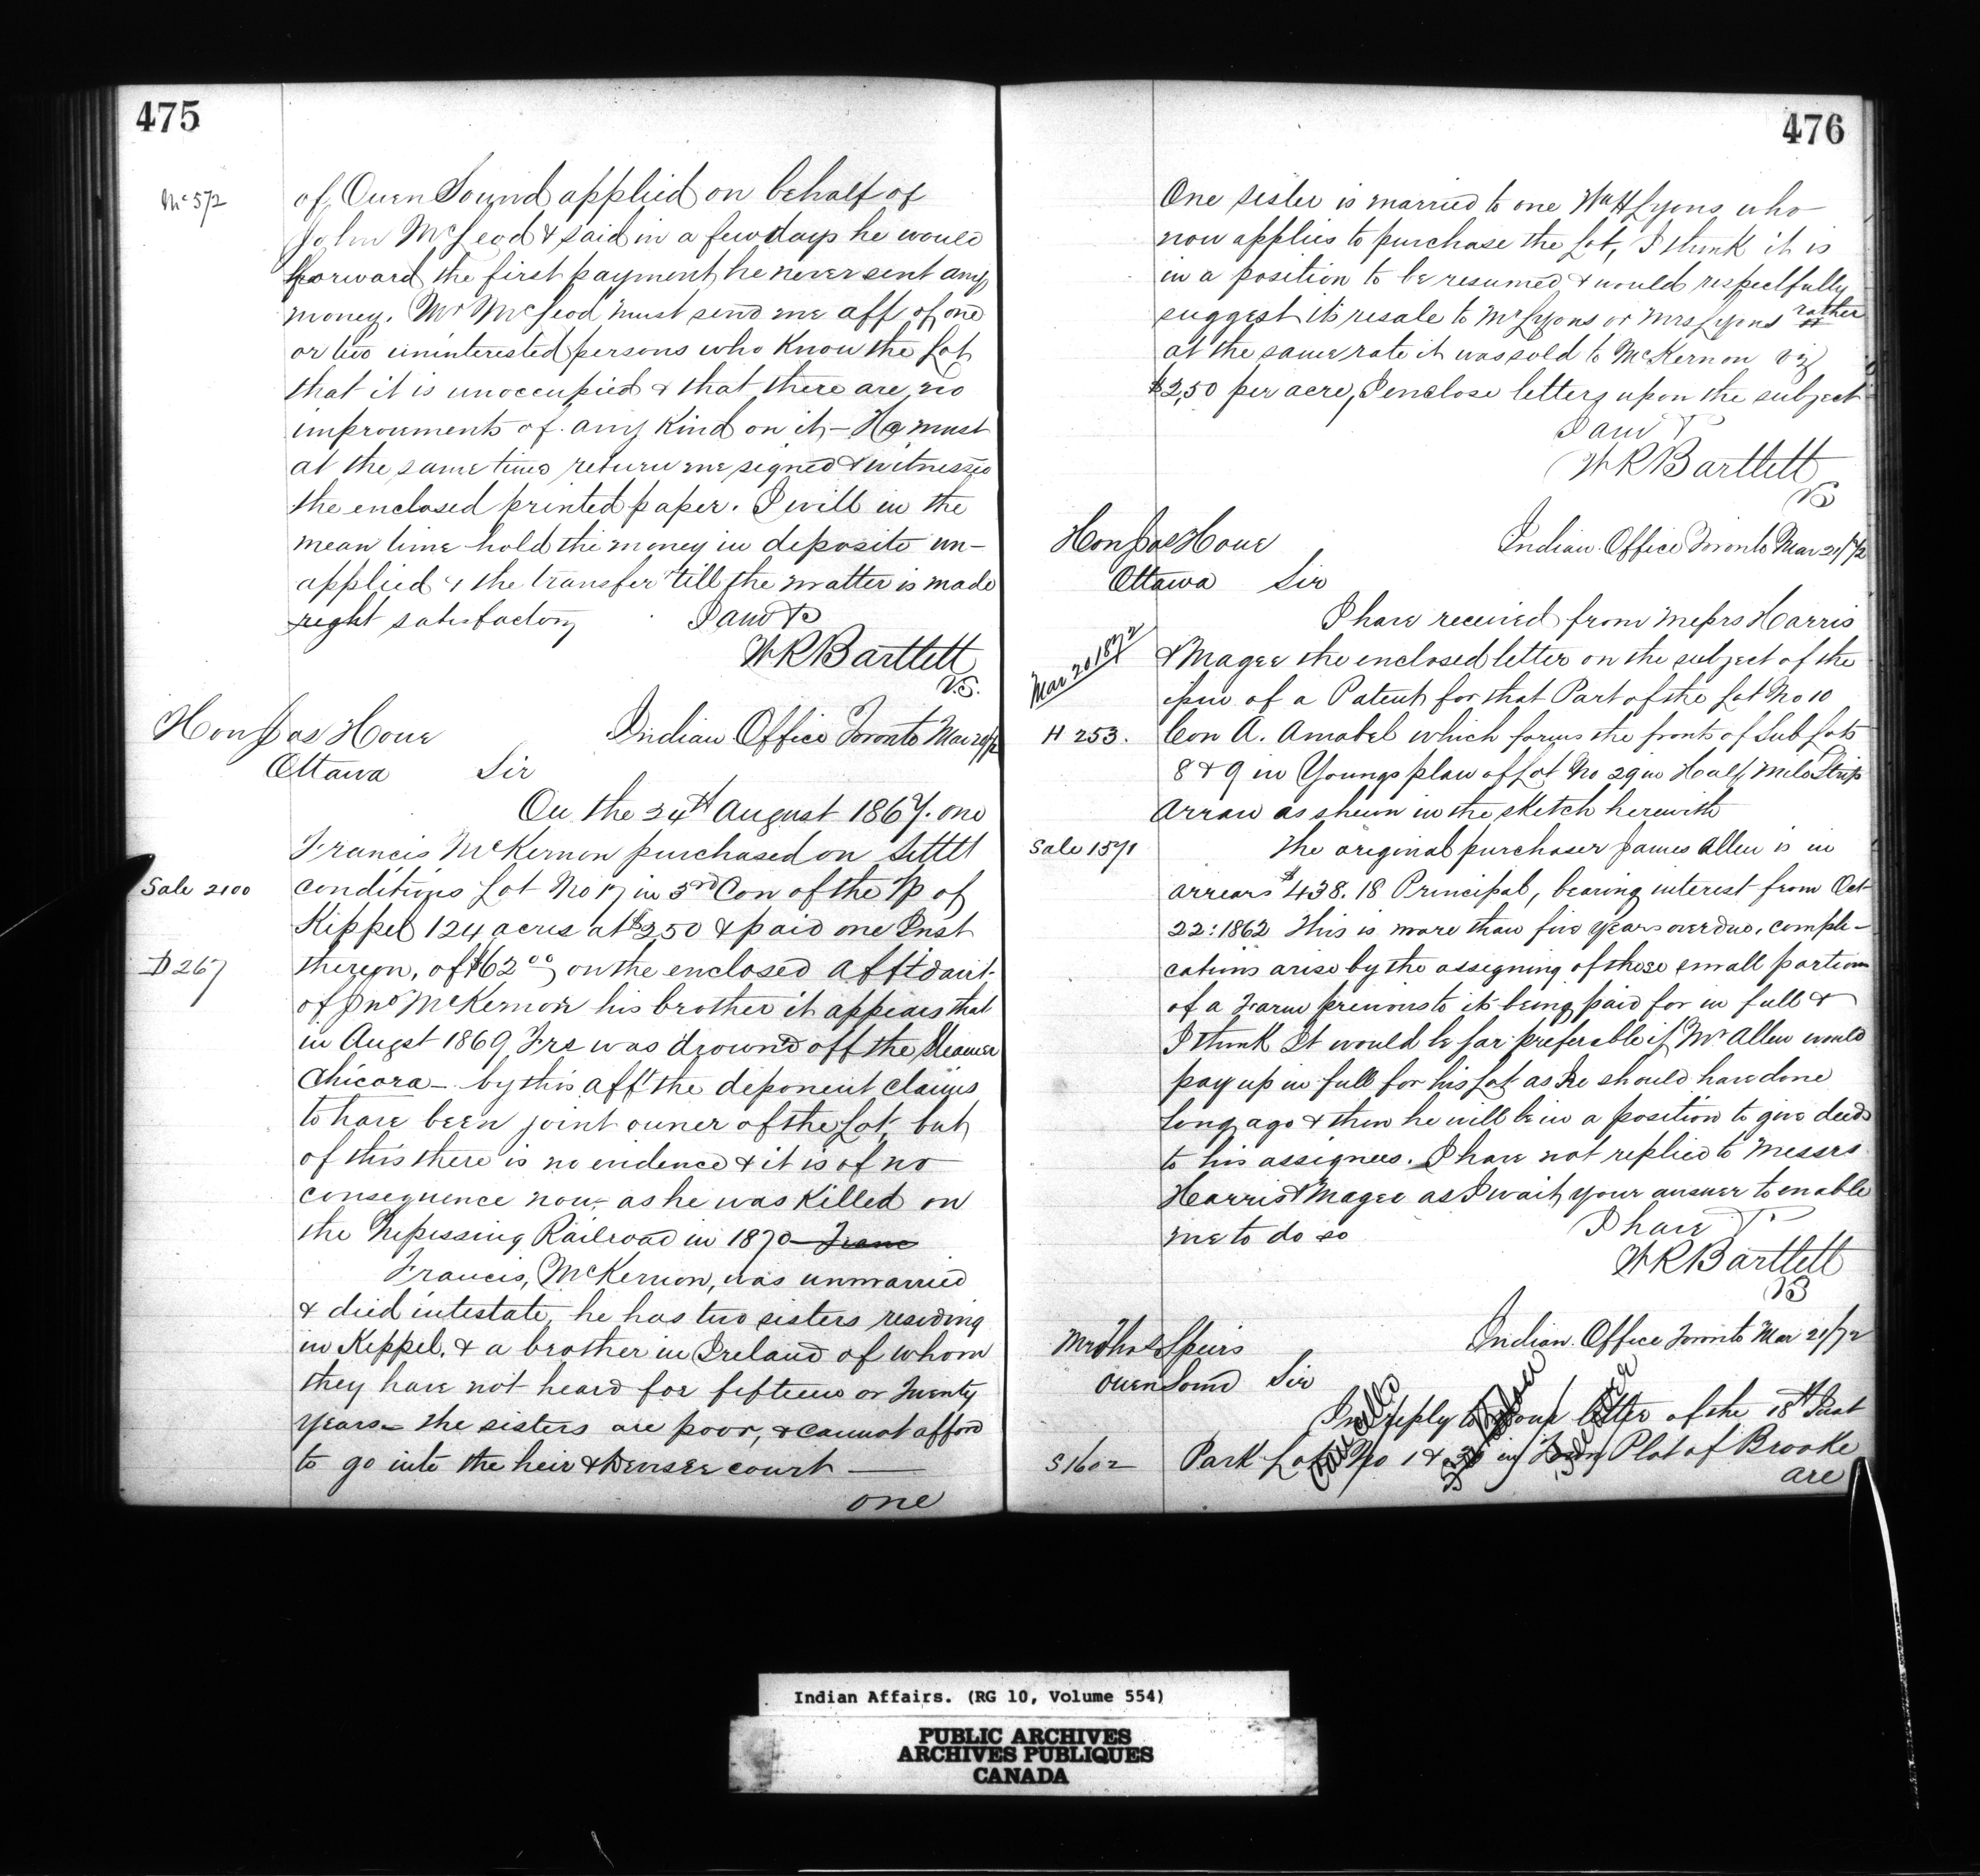 475
Mc 572
of Owen Sound applied on behalf of
John McLeod & said in a few days he would
forward the first payment, he never sent any
money. Mr McLeod must send me aff of one
or two uninterested persons who know the Lot
that it is unoccupied & that there are no
improvments of any kind on it, – He must
at the same time return me signed & witnessed
the enclosed printed paper. I will in the
mean time hold the money in deposite un-
applied & the transfer till the matter is made
right satisfactory I am &
W R Bartlett
V.S.
Hon Jos Howe Indian Office Toronto Mar 20/72
Ottawa Sir
On the 24th August 1867. one
Francis McKernon purchased on Settlt
Sale 2100
conditions Lot No 17 in 3rd Con of the Tp of
Keppel 124 acres at $2,50 & paid one Inst
D 267
thereon, of $62 00, on the enclosed Affidavit
of Jno McKernon his brother it appears that
in Augst 1869 Frs was drownd off the Steamer
Chicora – by this aff the deponent claims
to have been joint owner of the Lot, but
of this there is no evidence & it is of no
consequence now, as he was Killed on
the Nipissing Railroad in 1870 – Franc
Francis, McKernon, was unmarried
& died intestate, he has two sisters residing
in Keppel, & a brother in Ireland of whom
they have not heard for fifteen or twenty
years – the sisters are poor, & cannot afford
to go into the heir & Devisee court —
one
476
One sister is married to one Wm H Lyons who
now applies to purchase the Lot, I think it is
in a position to be resumed & would respectfully
suggest its resale to Mr Lyons or Mrs Lyons rather
at the same rate it was sold to McKernon viz
$2,50 per acre, I enclose letters upon the subject
I am &
W R Bartlett
VS
Hon Jos Howe Indian Office Toronto Mar 21/72
Ottawa Sir
I have received from Messrs Harris
Mar 20 1872
& Magee the enclosed letter on the subject of the
issue of a Patent for that Part of the Lot No 10
H 253.
Con A. Amabel which forms the front of Sub Lots
8 & 9 in Youngs plan of Lot No 29 in Half Mile Strip
Arran as shewn in the sketch herewith
Sale 1571
The original purchaser James Allen is in
arrears $438.18 Principal, bearing interest from Oct
22: 1862 This is more than five years overdue, compli-
cations arise by the assigning of these small portions
of a Farm previous to its being paid for in full &
I think It would be far preferable if Mr Allen would
pay up in full for his Lot as he should have done
long ago & then he will be in a position to give deeds
to his assignees. I have not replied to Messrs
Harris & Magee as I wait your answer to enable
me to do so I have &
W R Bartlett
VS
Mr Thos Spiers Indian Office Toronto Mar 21/72
Owen Sound Sir
In reply to your letter of the 18th Inst
S 1602
Park Lots No 1 & in Town Plot of Brooke
are
Indian Affairs. (RG 10, Volume 554)
PUBLIC ARCHIVES
ARCHIVES PUBLIQUES
CANADA